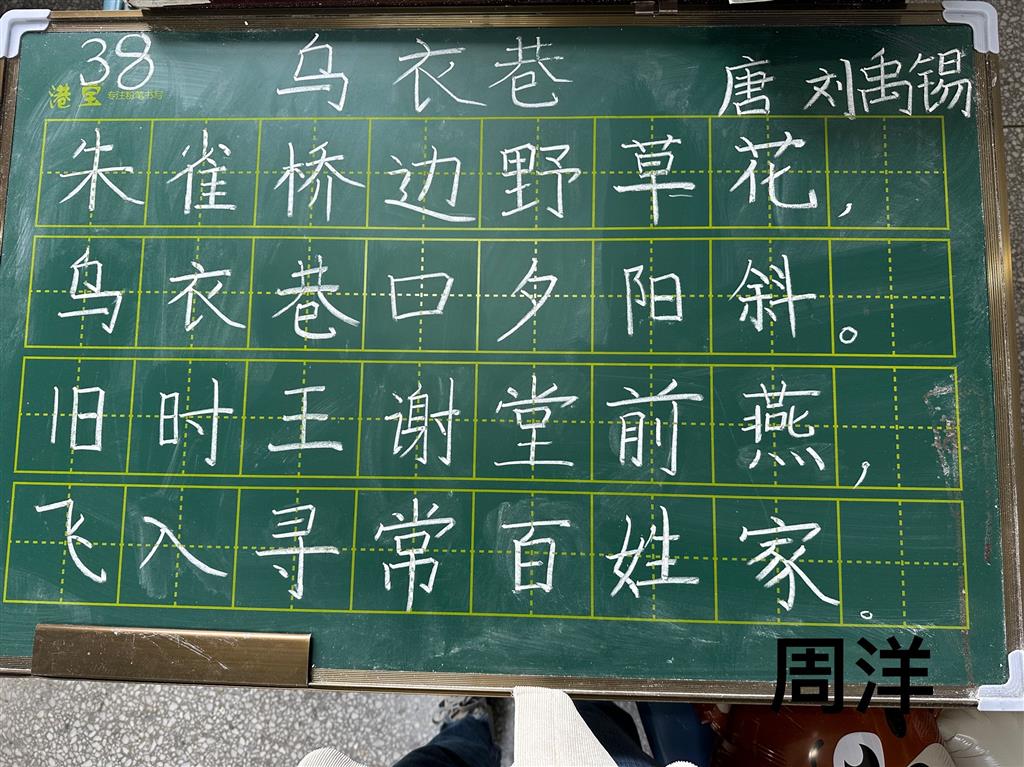 38
乌衣巷
唐 刘禹锡
港呈 专注粉笔书写
朱雀桥边野草花，
乌衣巷口夕阳斜。
旧时王谢堂前燕，
飞入寻常百姓家。
周洋